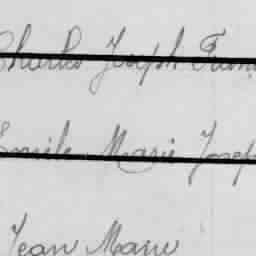 Charles Joseph Fran
Emile Marie Josep
Jean Marie